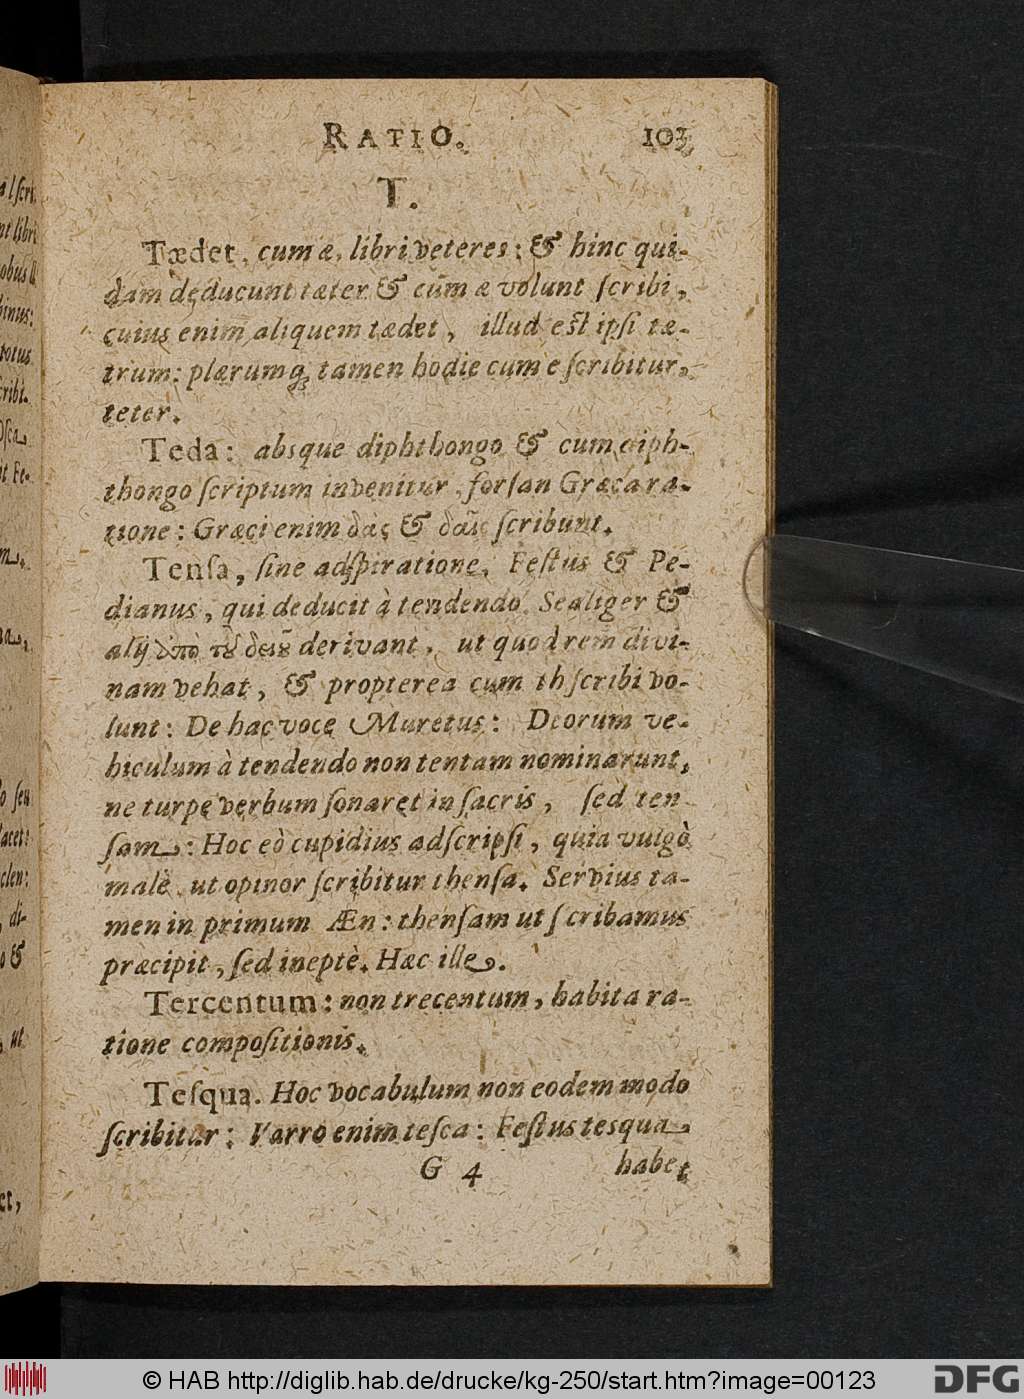 RATIO. 103
T.
Tædet, cum æ, libri veteres: & hinc qui-
dam deducunt tæter & cum æ volunt ſcribi,
cuius enim aliquem tædet, illud eſt ipſi tæ-
trum: plærumq; tamen hodie cum e ſcribitur,
teter.
Teda: absque diphthongo & cum diph-
thongo ſcriptum invenitur, forſan Græca ra-
tione: Græci enim δάς & δαῒς ſcribunt.
Tenſa, ſine adſpiratione, Feſtus & Pe-
dianus, qui deducit à tendendo. Scaliger &
alij ἀπὸ τȣ͂ derivant, ut quod rem divi-
nam vehat, & propterea cum th ſcribi vo-
lunt: De hac voce Muretus: Deorum ve-
hiculum à tendendo non tentam nominarunt,
ne turpe verbum ſonaret in ſacris, ſed ten
ſam: Hoc eò cupidius adſcripſi, quia vulgò
malè, ut opinor ſcribitur thenſa. Servius ta-
men in primum Æn: thenſam ut ſcribamus
præcipit, ſed ineptè. Hæc ille.
Tercentum: non trecentum, habita ra-
tione compoſitionis.
Teſqua. Hoc vocabulum non eodem modo
ſcribitur: Varro enim teſca: Feſtus tesqua
G 4 habet
© HAB http://diglib.hab.de/drucke/kg-250/start.htm?image=00123
DFG